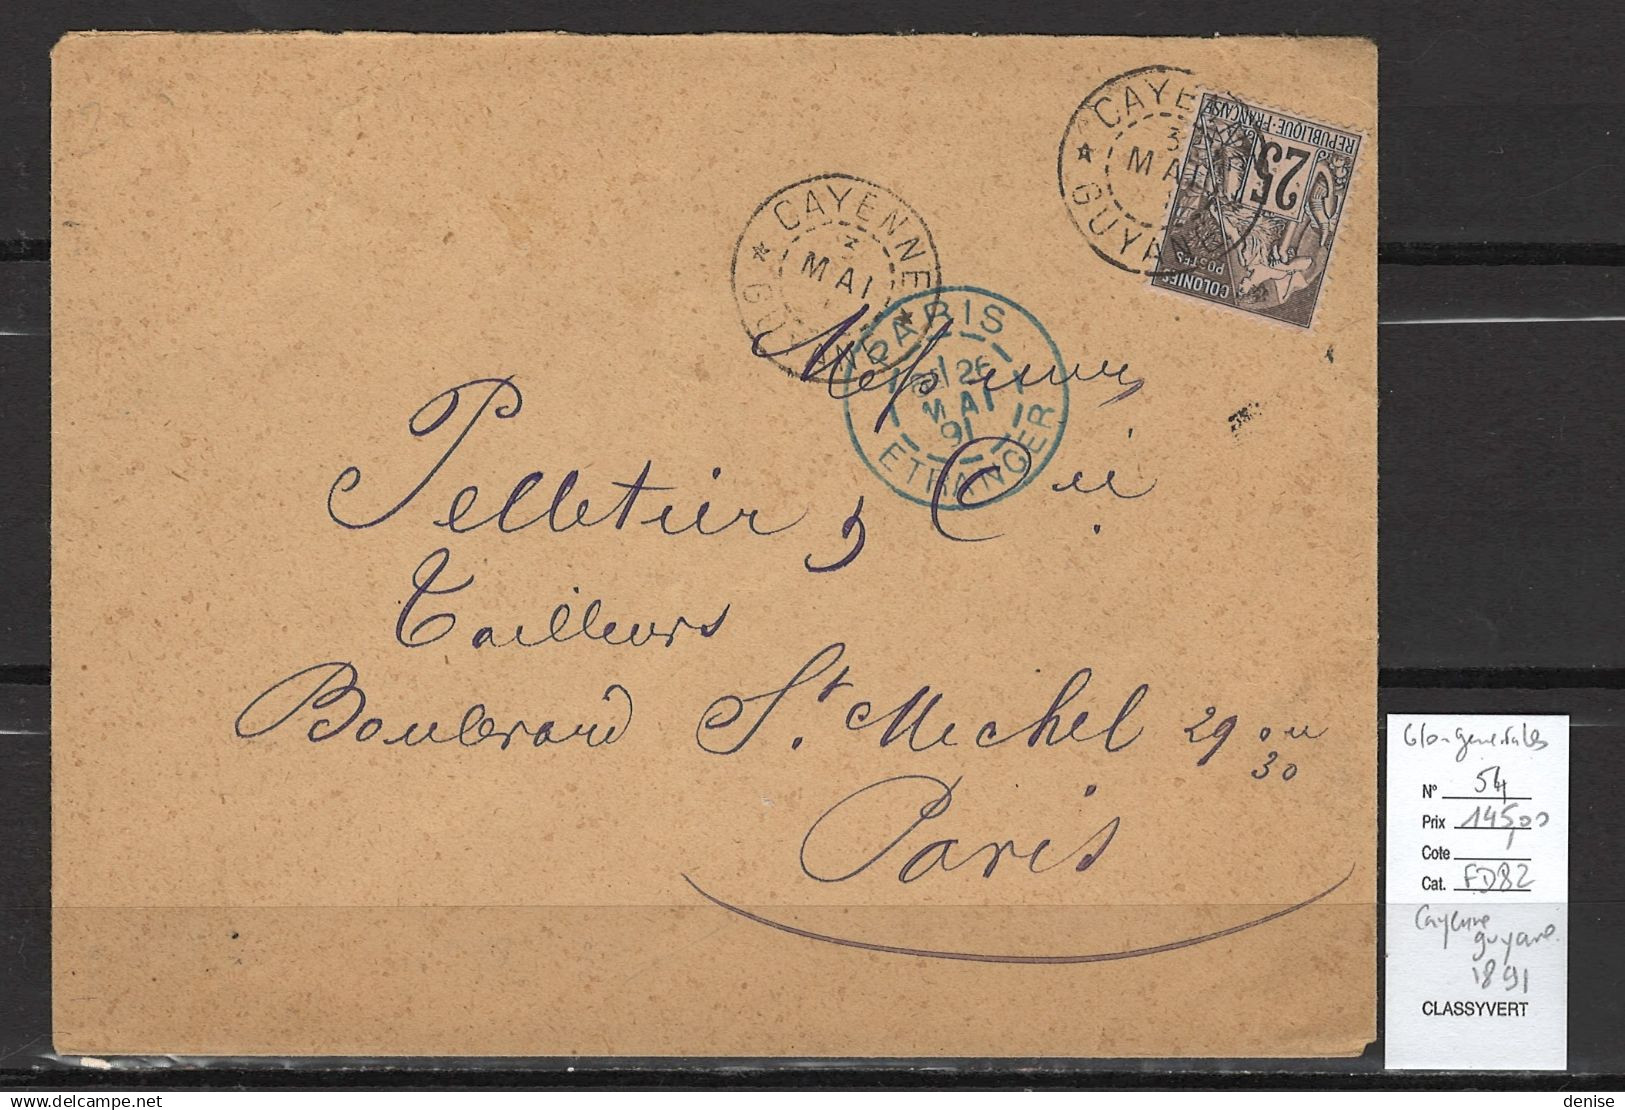 CAYENNE
3
MAI
GUYANE
25
REPUBLIQUE·FRANÇAISE
COLONIES
POSTES
CAYENNE
3
MAI
GUYANE
PARIS
26
MAI
91
ETRANGER
Messieurs
Pelletier, & Cie
Tailleurs
Boulevard St. Michel 29 ou
30
Paris
N° 54
Prix 145,00
Cote
Cat. FD82
Cayenne
guyane
1891
CLASSYVERT
denise